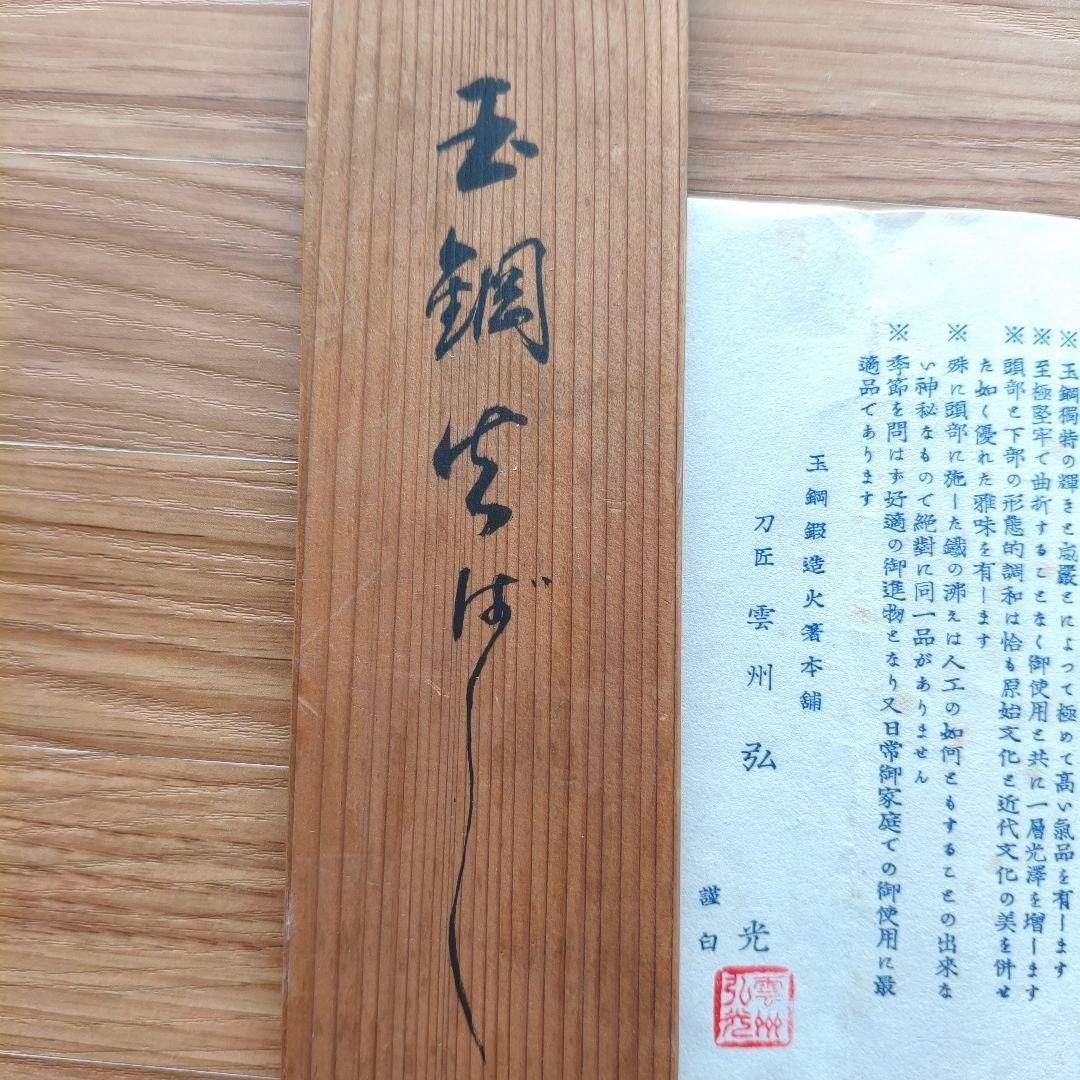 玉鋼火ばし
※玉鋼獨特の輝きと威嚴とによって極めて高い氣品を有します
※至極堅牢で曲折することなく御使用と共に一層光澤を増します
※頭部と下部の形態的調和は恰も原始文化と近代文化の美を併せ
た如く優れた雅味を有します
※殊に頭部に施した鐵の沸えは人工の如何ともすることの出來な
い神秘なもので絶對に同一品がありません
※季節を問はず好適の御進物となり又日常御家庭での御使用に最
適品であります
玉鋼鍛造火箸本舗
刀匠 雲州 弘光
謹白
雲州
弘光